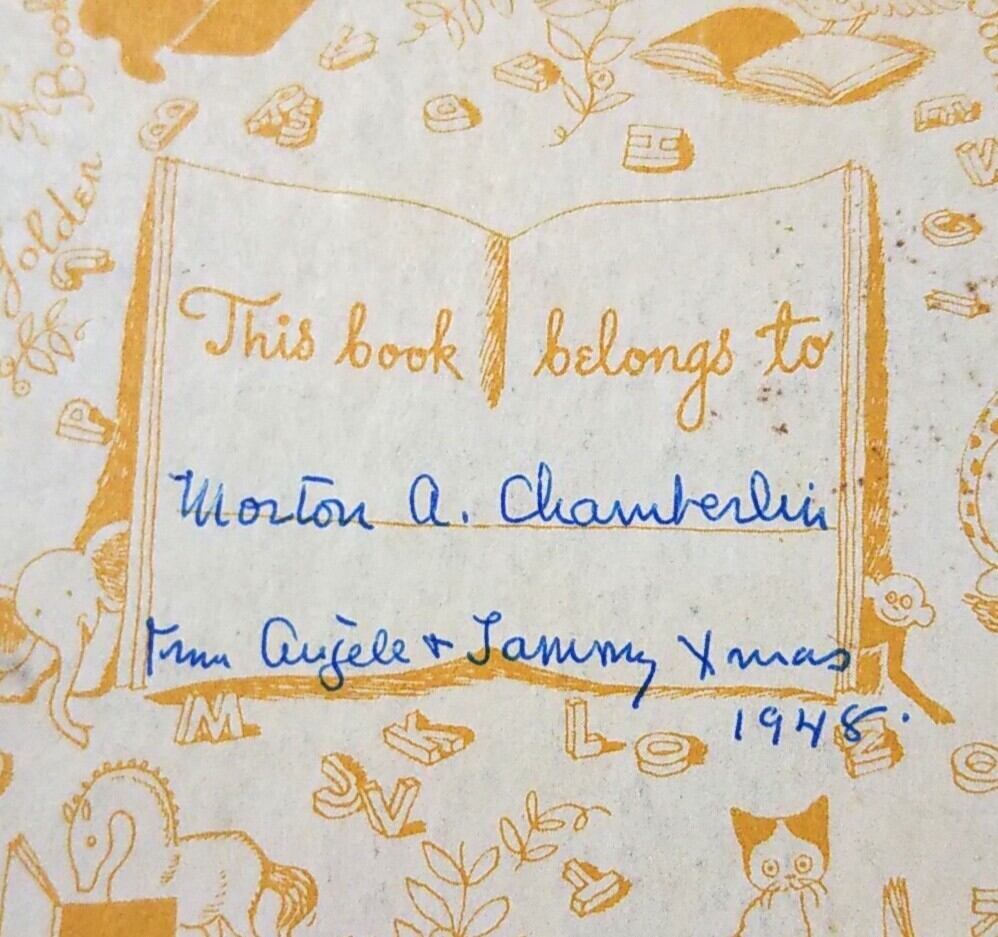 A
Book
Golden
This book belongs to
Morton A. Chamberlin
From Angele & Sammy Xmas
1948.